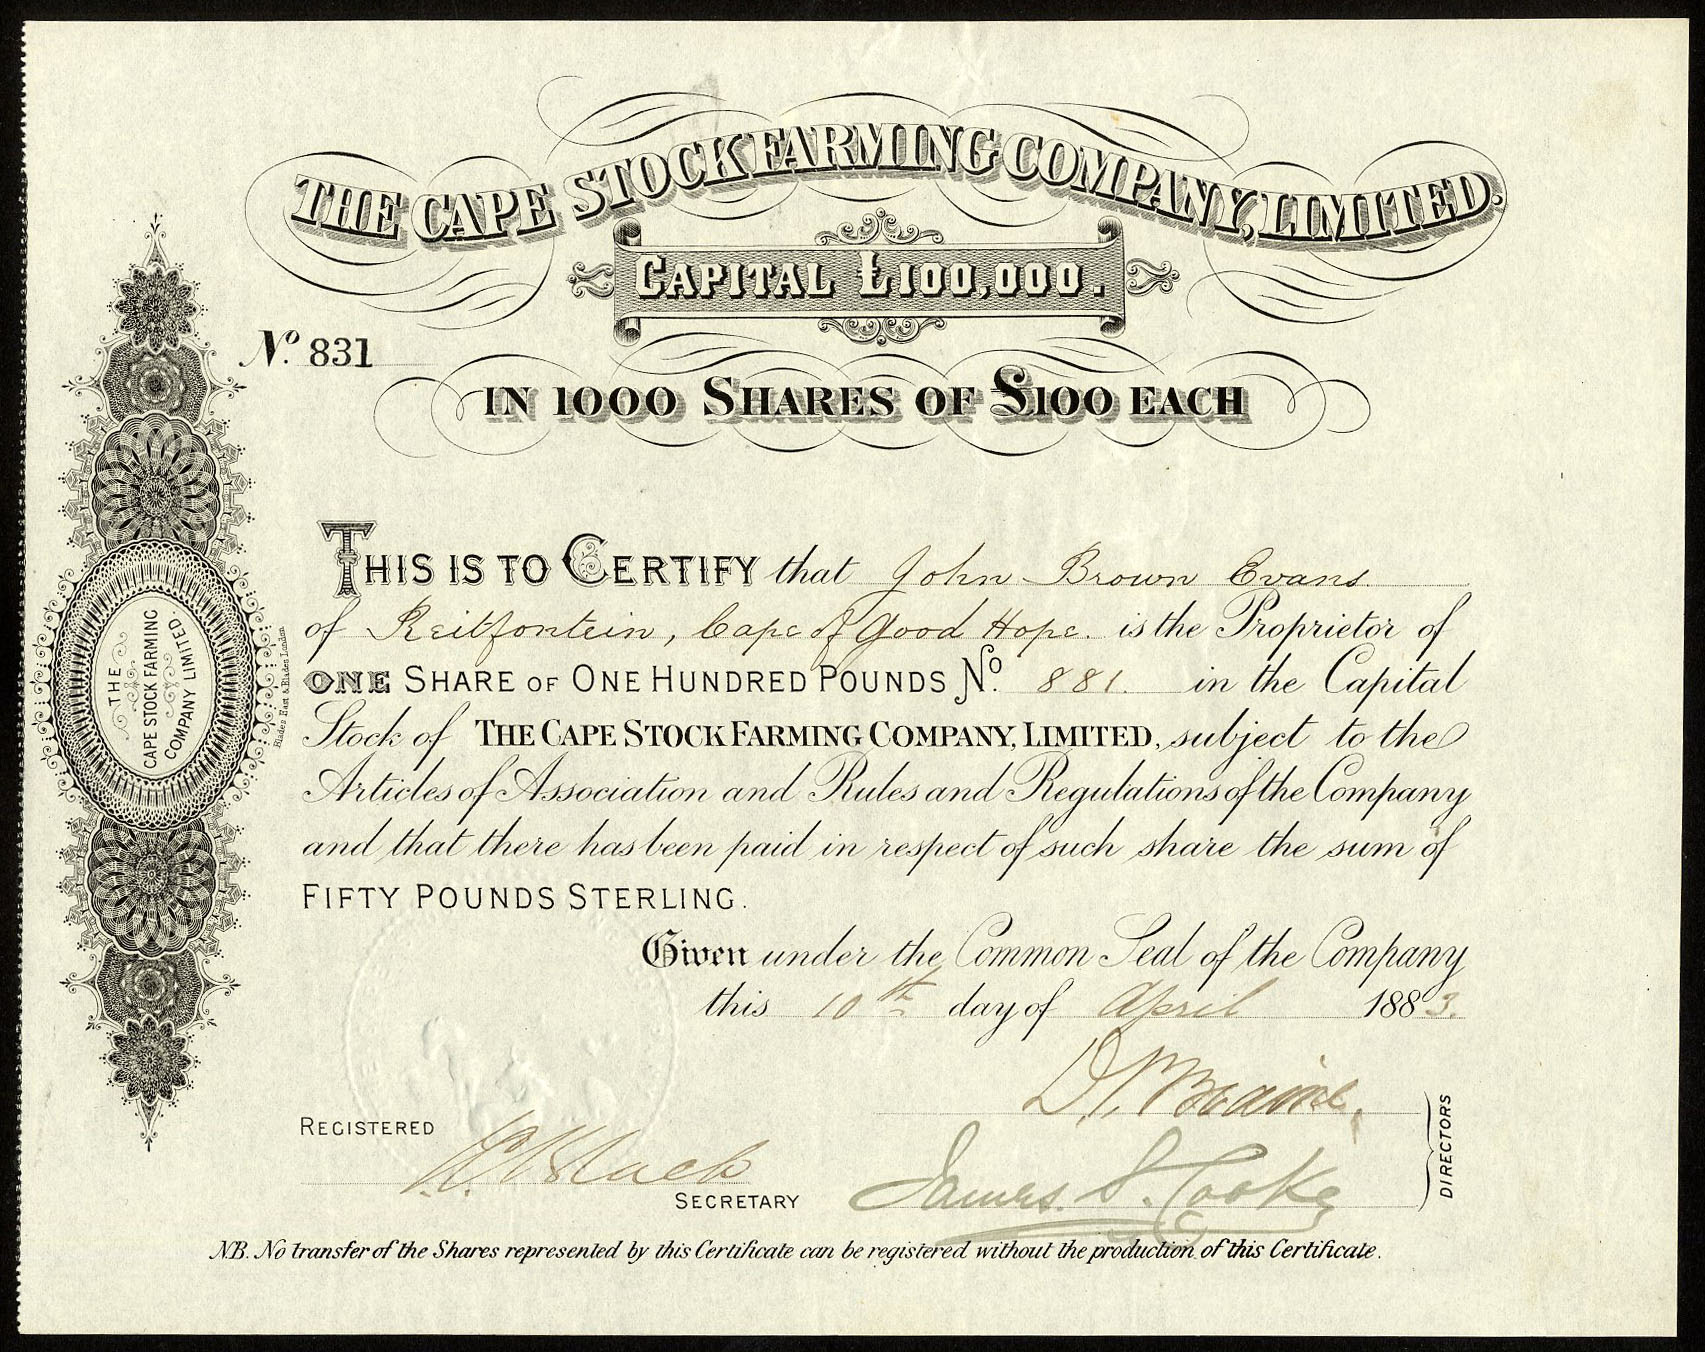 THE CAPE STOCK FARMING COMPANY, LIMITED.
CAPITAL £100,000.
No. 831
IN 1000 SHARES OF £100 EACH
THIS IS TO CERTIFY that John Brown Evans
of Reitfontein, Cape of Good Hope. is the Proprietor of
ONE SHARE OF ONE HUNDRED POUNDS No. 881. in the Capital
Stock of THE CAPE STOCK FARMING COMPANY, LIMITED, subject to the
Articles of Association and Rules and Regulations of the Company
and that there has been paid in respect of such share the sum of
FIFTY POUNDS STERLING.
Given under the Common Seal of the Company
this 10th day of April 1883.
REGISTERED
SECRETARY
James S. Cooke
DIRECTORS
N.B. No transfer of the Shares represented by this Certificate can be registered without the production of this Certificate.
THE
CAPE STOCK FARMING
COMPANY LIMITED.
Blades East & Blades London